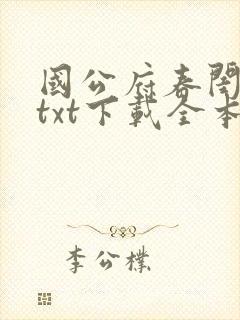 國公府春閨
txt下載全本
李公樸